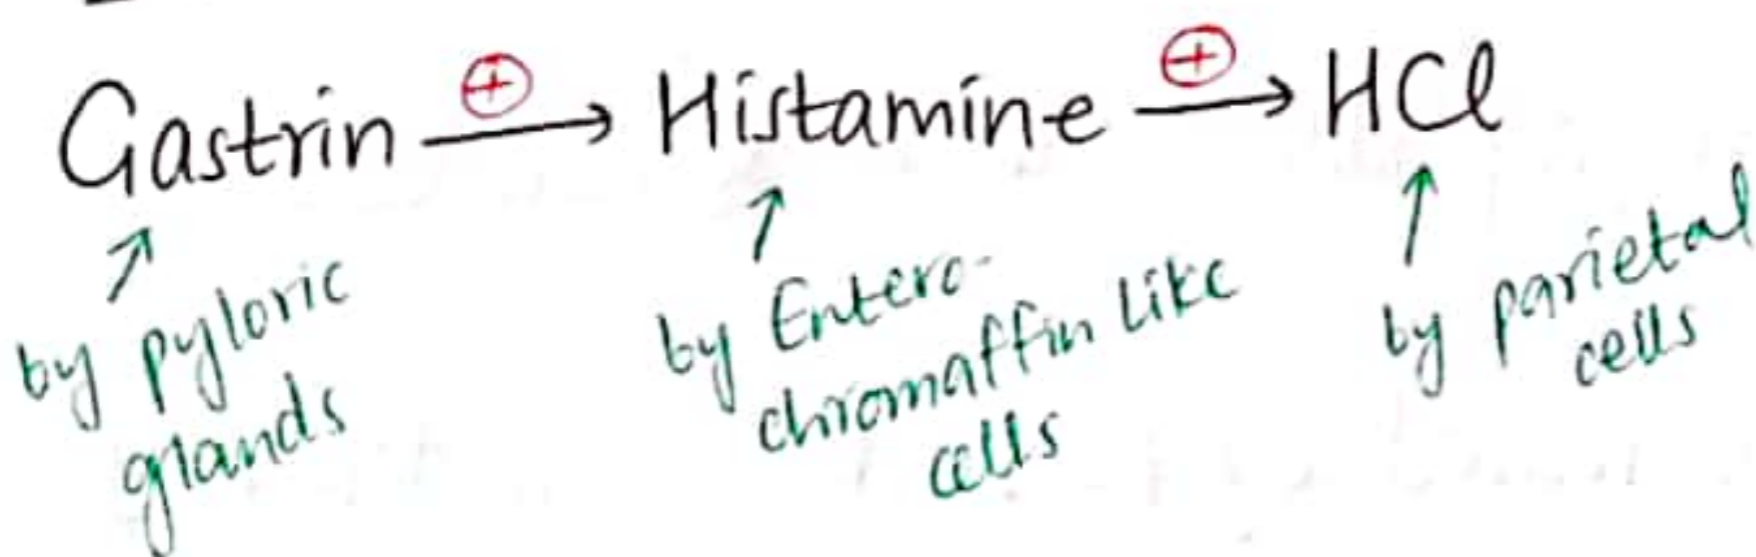 Gastrin ⊕→ Histamine ⊕→ HCl
↗ by pyloric
glands
↗ by Entero-
chromaffin like
cells
↑ by parietal
cells